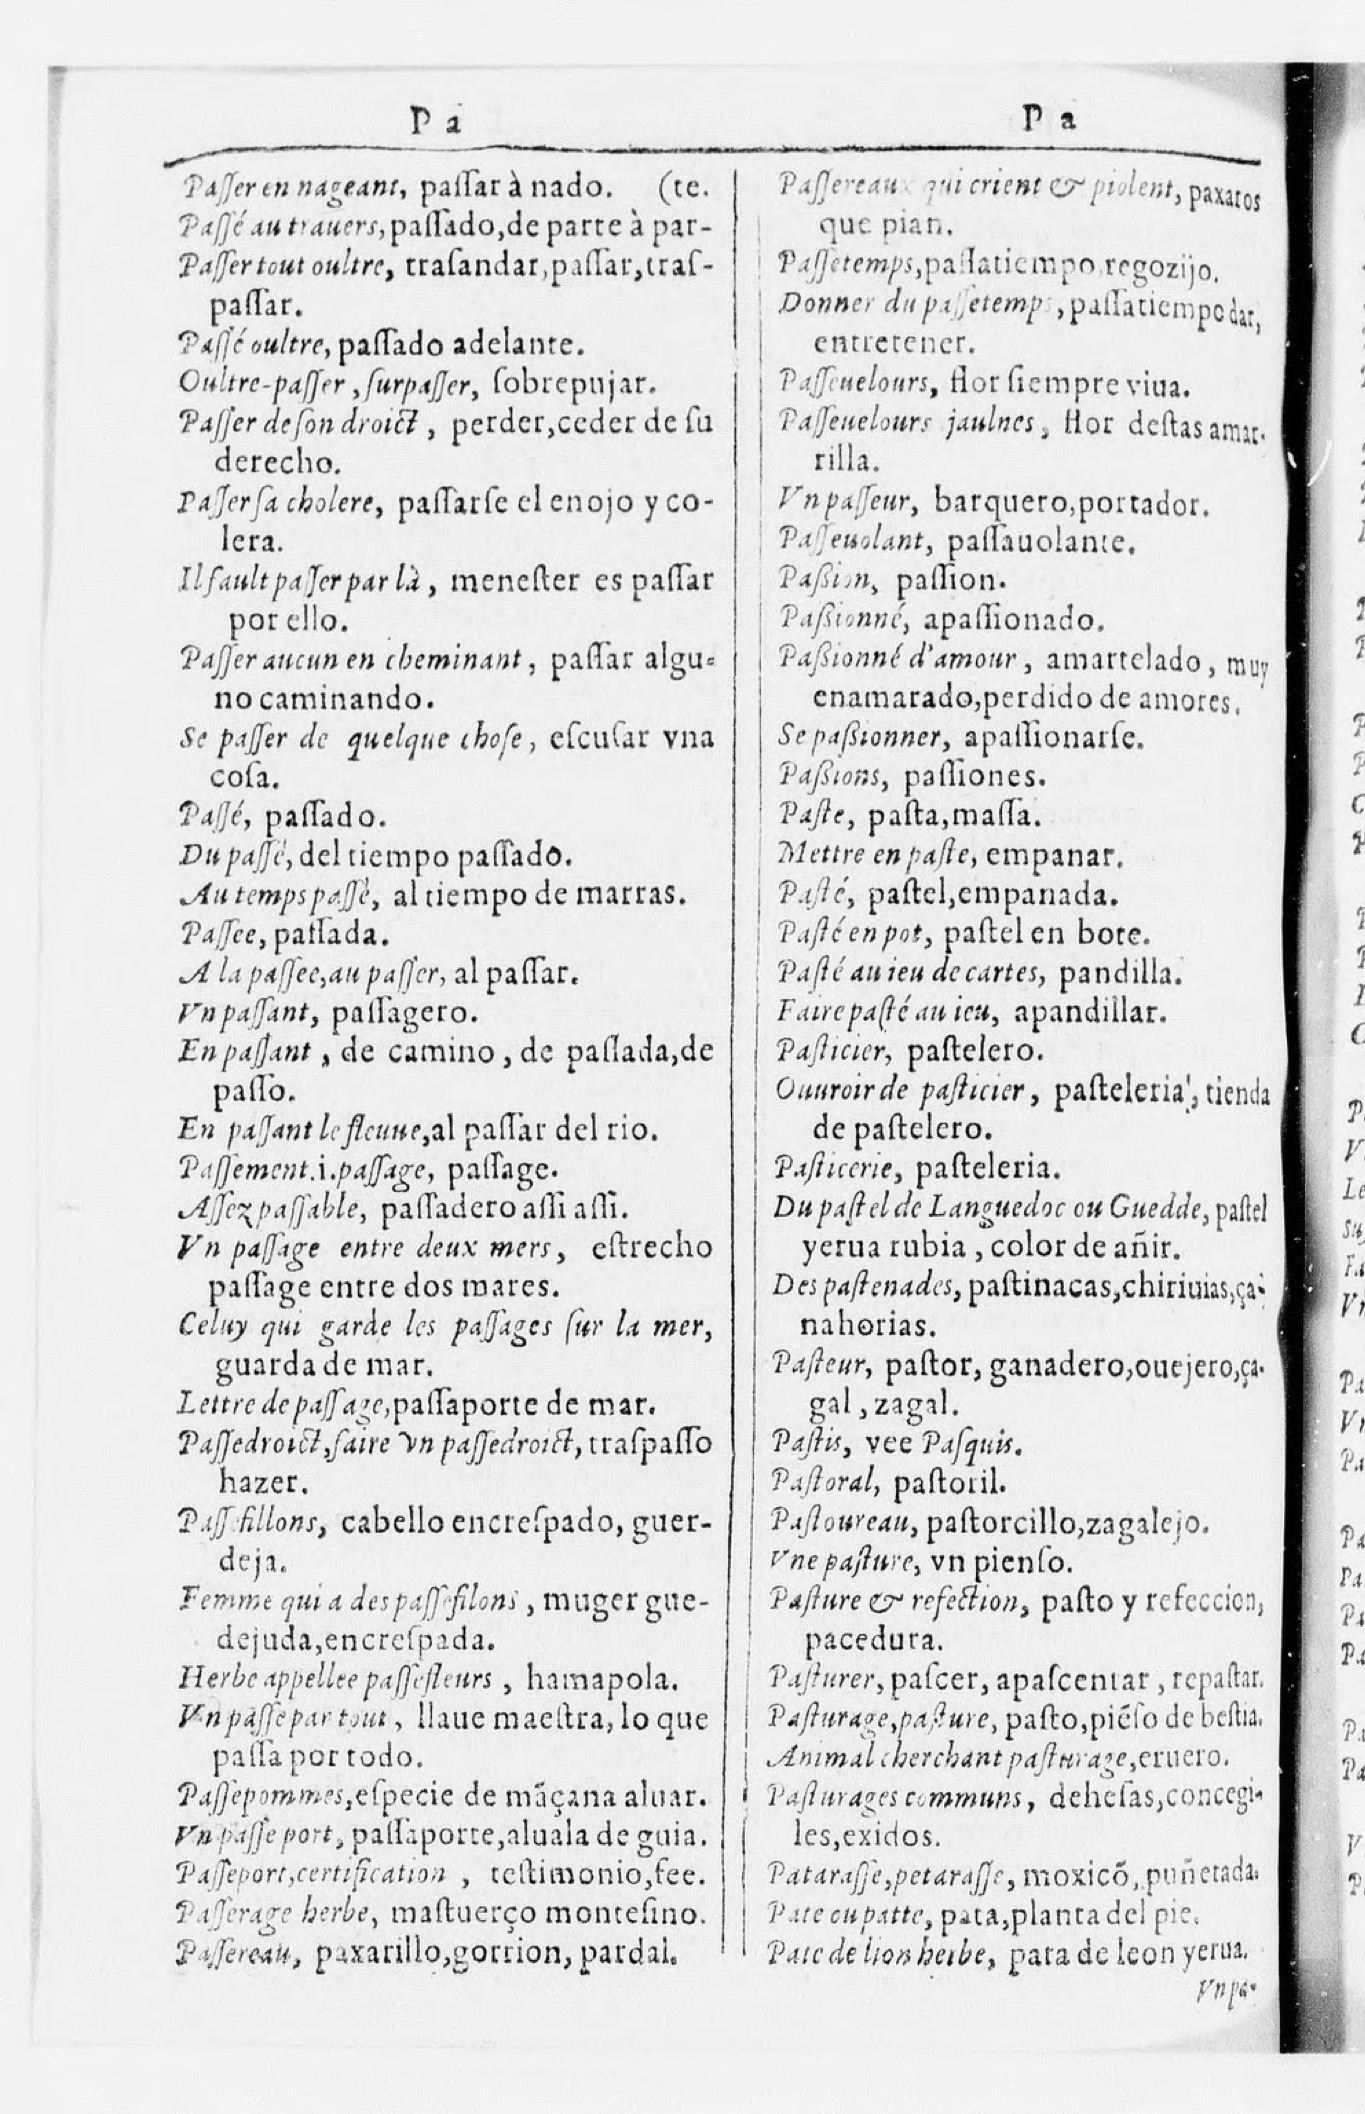 P a
Paſſer en nageant, paſſar à nado. (te.
Paſſé au trauers, paſſado, de parte à par-
Paſſer tout oultre, traſandar, paſſar, traſ-
paſſar.
Paſſé oultre, paſſado adelante.
Oultre-paſſer, ſurpaſſer, ſobrepujar.
Paſſer de ſon droict, perder, ceder de ſu
derecho.
Paſſer ſa cholere, paſſarſe el enojo y co-
lera.
Il fault paſſer par là, meneſter es paſſar
por ello.
Paſſer aucun en cheminant, paſſar algu-
no caminando.
Se paſſer de quelque choſe, eſcuſar vna
coſa.
Paſſé, paſſado.
Du paſſé, del tiempo paſſado.
Au temps paſſé, al tiempo de marras.
Paſſee, paſſada.
A la paſſee, au paſſer, al paſſar.
Vn paſſant, paſſagero.
En paſſant, de camino, de paſſada, de
paſſo.
En paſſant le fleuue, al paſſar del rio.
Paſſement.i. paſſage, paſſage.
Aſſez paſſable, paſſadero aſſi aſſi.
Vn paſſage entre deux mers, eſtrecho
paſſage entre dos mares.
Celuy qui garde les paſſages ſur la mer,
guarda de mar.
Lettre de paſſage, paſſaporte de mar.
Paſſedroict, faire vn paſſedroict, traſpaſſo
hazer.
Paſſefillons, cabello encreſpado, guer-
deja.
Femme qui a des paſſefilons, muger gue-
dejuda, encreſpada.
Herbe appellee paſſefleurs, hamapola.
Vn paſſe par tout, llaue maeſtra, lo que
paſſa por todo.
Paſſepommes, eſpecie de mãçana aluar.
Vn paſſe port, paſſaporte, aluala de guia.
Paſſeport, certification, teſtimonio, fee.
Paſſerage herbe, maſtuerço monteſino.
Paſſereau, paxarillo, gorrion, pardal.
P a
Paſſereaux qui crient & piolent, paxaros
que pian.
Paſſetemps, paſſatiempo, regozijo.
Donner du paſſetemps, paſſatiempo dar,
entretener.
Paſſeuelours, flor ſiempre viua.
Paſſeuelours jaulnes, flor deſtas amar-
rilla.
Vn paſſeur, barquero, portador.
Paſſeuolant, paſſauolante.
Paßion, paſſion.
Paßionné, apaſſionado.
Paßionné d'amour, amartelado, muy
enamarado, perdido de amores.
Se paßionner, apaſſionarſe.
Paßions, paſſiones.
Paſte, paſta, maſſa.
Mettre en paſte, empanar.
Paſté, paſtel, empanada.
Paſté en pot, paſtel en bote.
Paſté au ieu de cartes, pandilla.
Faire paſté au ieu, apandillar.
Paſticier, paſtelero.
Ouuroir de paſticier, paſteleria, tienda
de paſtelero.
Paſticerie, paſteleria.
Du paſtel de Languedoc ou Guedde, paſtel
yerua rubia, color de añir.
Des paſtenades, paſtinacas, chiriuias, ça-
nahorias.
Paſteur, paſtor, ganadero, ouejero, ça-
gal, zagal.
Paſtis, vee Paſquis.
Paſtoral, paſtoril.
Paſtoureau, paſtorcillo, zagalejo.
Vne paſture, vn pienſo.
Paſture & refection, paſto y refeccion,
pacedura.
Paſturer, paſcer, apaſcentar, repaſtar.
Paſturage, paſture, paſto, piẽſo de beſtia.
Animal cherchant paſturage, eruero.
Paſturages communs, deheſas, concegi-
les, exidos.
Pataraſſe, petaraſſe, moxicõ, puñetada.
Pate ou patte, pata, planta del pie.
Pate de lion herbe, pata de leon yerua.
Vn pa-